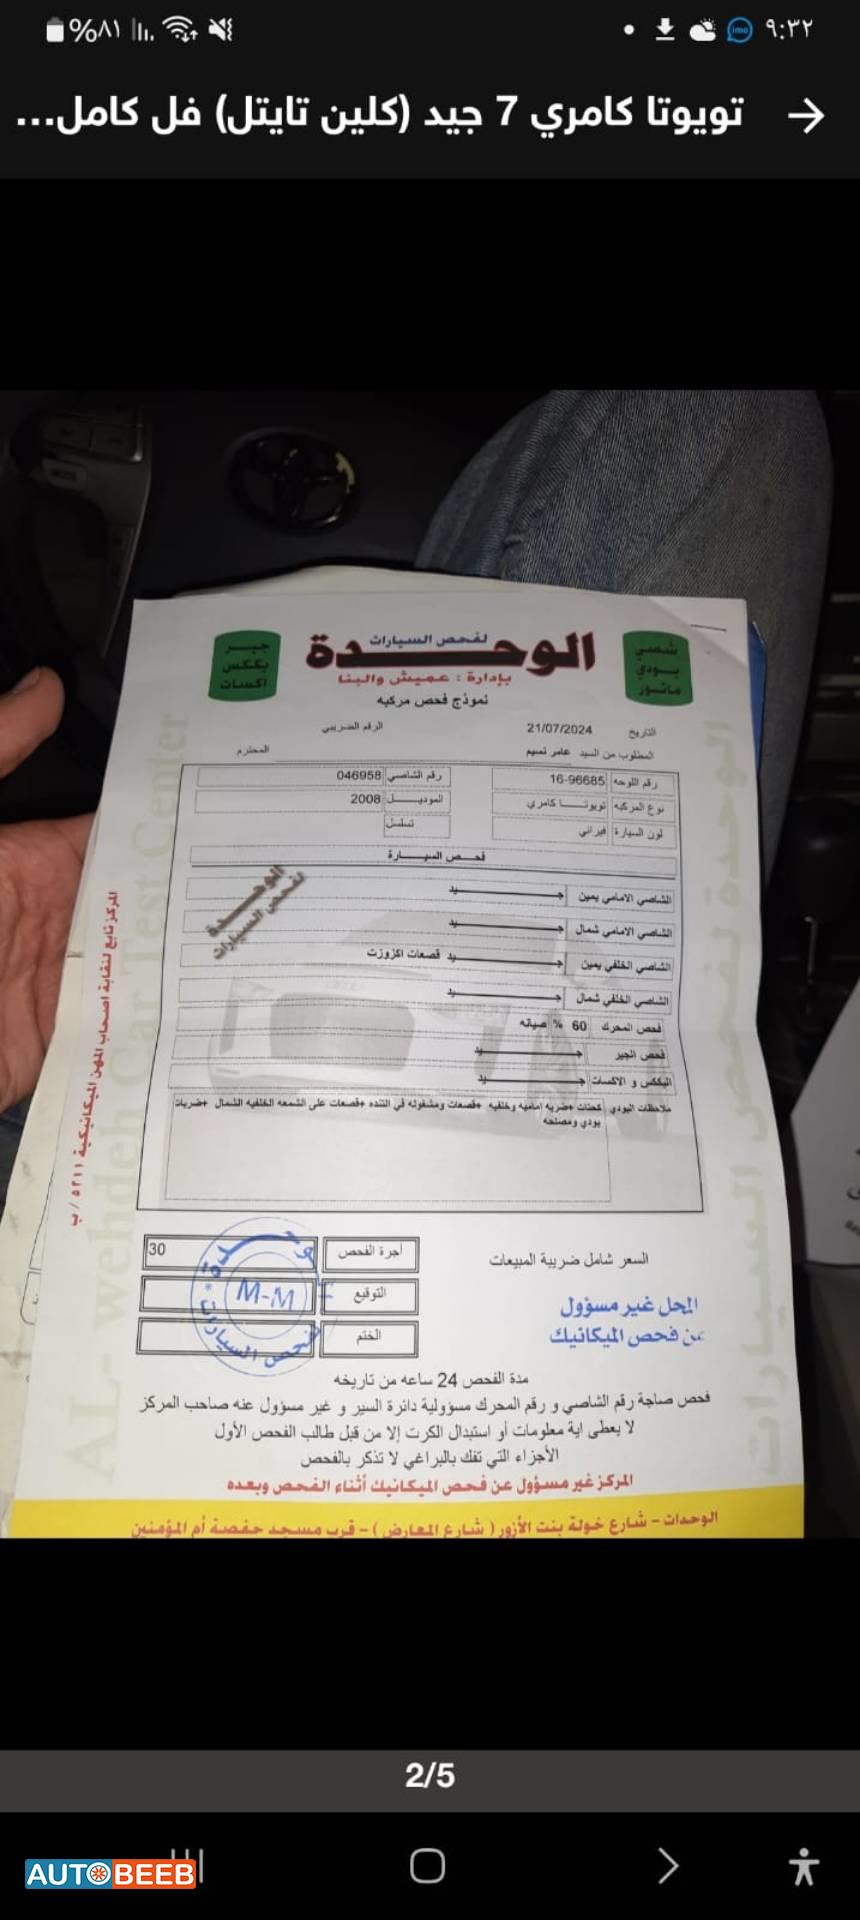 ٩:٣٢
%٨١
تويوتا كامري 7 جيد (كلين تايتل) فل كامل...
شصي
بودي
ماتور
لفحص السيارات
الوحدة
بإدارة : عميش والبنا
جير
بككس
اكسات
نموذج فحص مركبه
التاريخ 21/07/2024 الرقم الضريبي
المطلوب من السيد عامر نسيم المحترم
رقم اللوحه 16-96685 رقم الشاصي 046958
نوع المركبه تويوتا كامري الموديل 2008
لون السيارة فيراني تسلسل
فحص السيارة
الشاصي الامامي يمين جيد
الشاصي الامامي شمال جيد
الشاصي الخلفي يمين جيد قصعات اكزوزت
الشاصي الخلفي شمال جيد
فحص المحرك 60 % صيانه
فحص الجير جيد
البككس و الاكسات جيد
ملاحظات البودي كحتات +ضربه اماميه وخلفيه +قصعات ومشغوله في التنده +قصعات على الشمعه الخلفيه الشمال +ضربات
بودي ومصلحه
الوحدة
لفحص السيارات
AL- wehdeh Car Test Center
الوحدة لفحص السيارات
المركز تابع لنقابة اصحاب المهن الميكانيكية ٥٢١١ / ب
السعر شامل ضريبة المبيعات
أجرة الفحص 30
التوقيع
الختم
M-M
المحل غير مسؤول
عن فحص الميكانيك
مدة الفحص 24 ساعه من تاريخه
فحص صاجة رقم الشاصي و رقم المحرك مسؤولية دائرة السير و غير مسؤول عنه صاحب المركز
لا يعطى اية معلومات أو استبدال الكرت إلا من قبل طالب الفحص الأول
الأجزاء التي تفك بالبراغي لا تذكر بالفحص
المركز غير مسؤول عن فحص الميكانيك أثناء الفحص وبعده
الوحدات - شارع خولة بنت الأزور ( شارع المعارض ) - قرب مسجد حفصة أم المؤمنين
2/5
AUTOBEEB